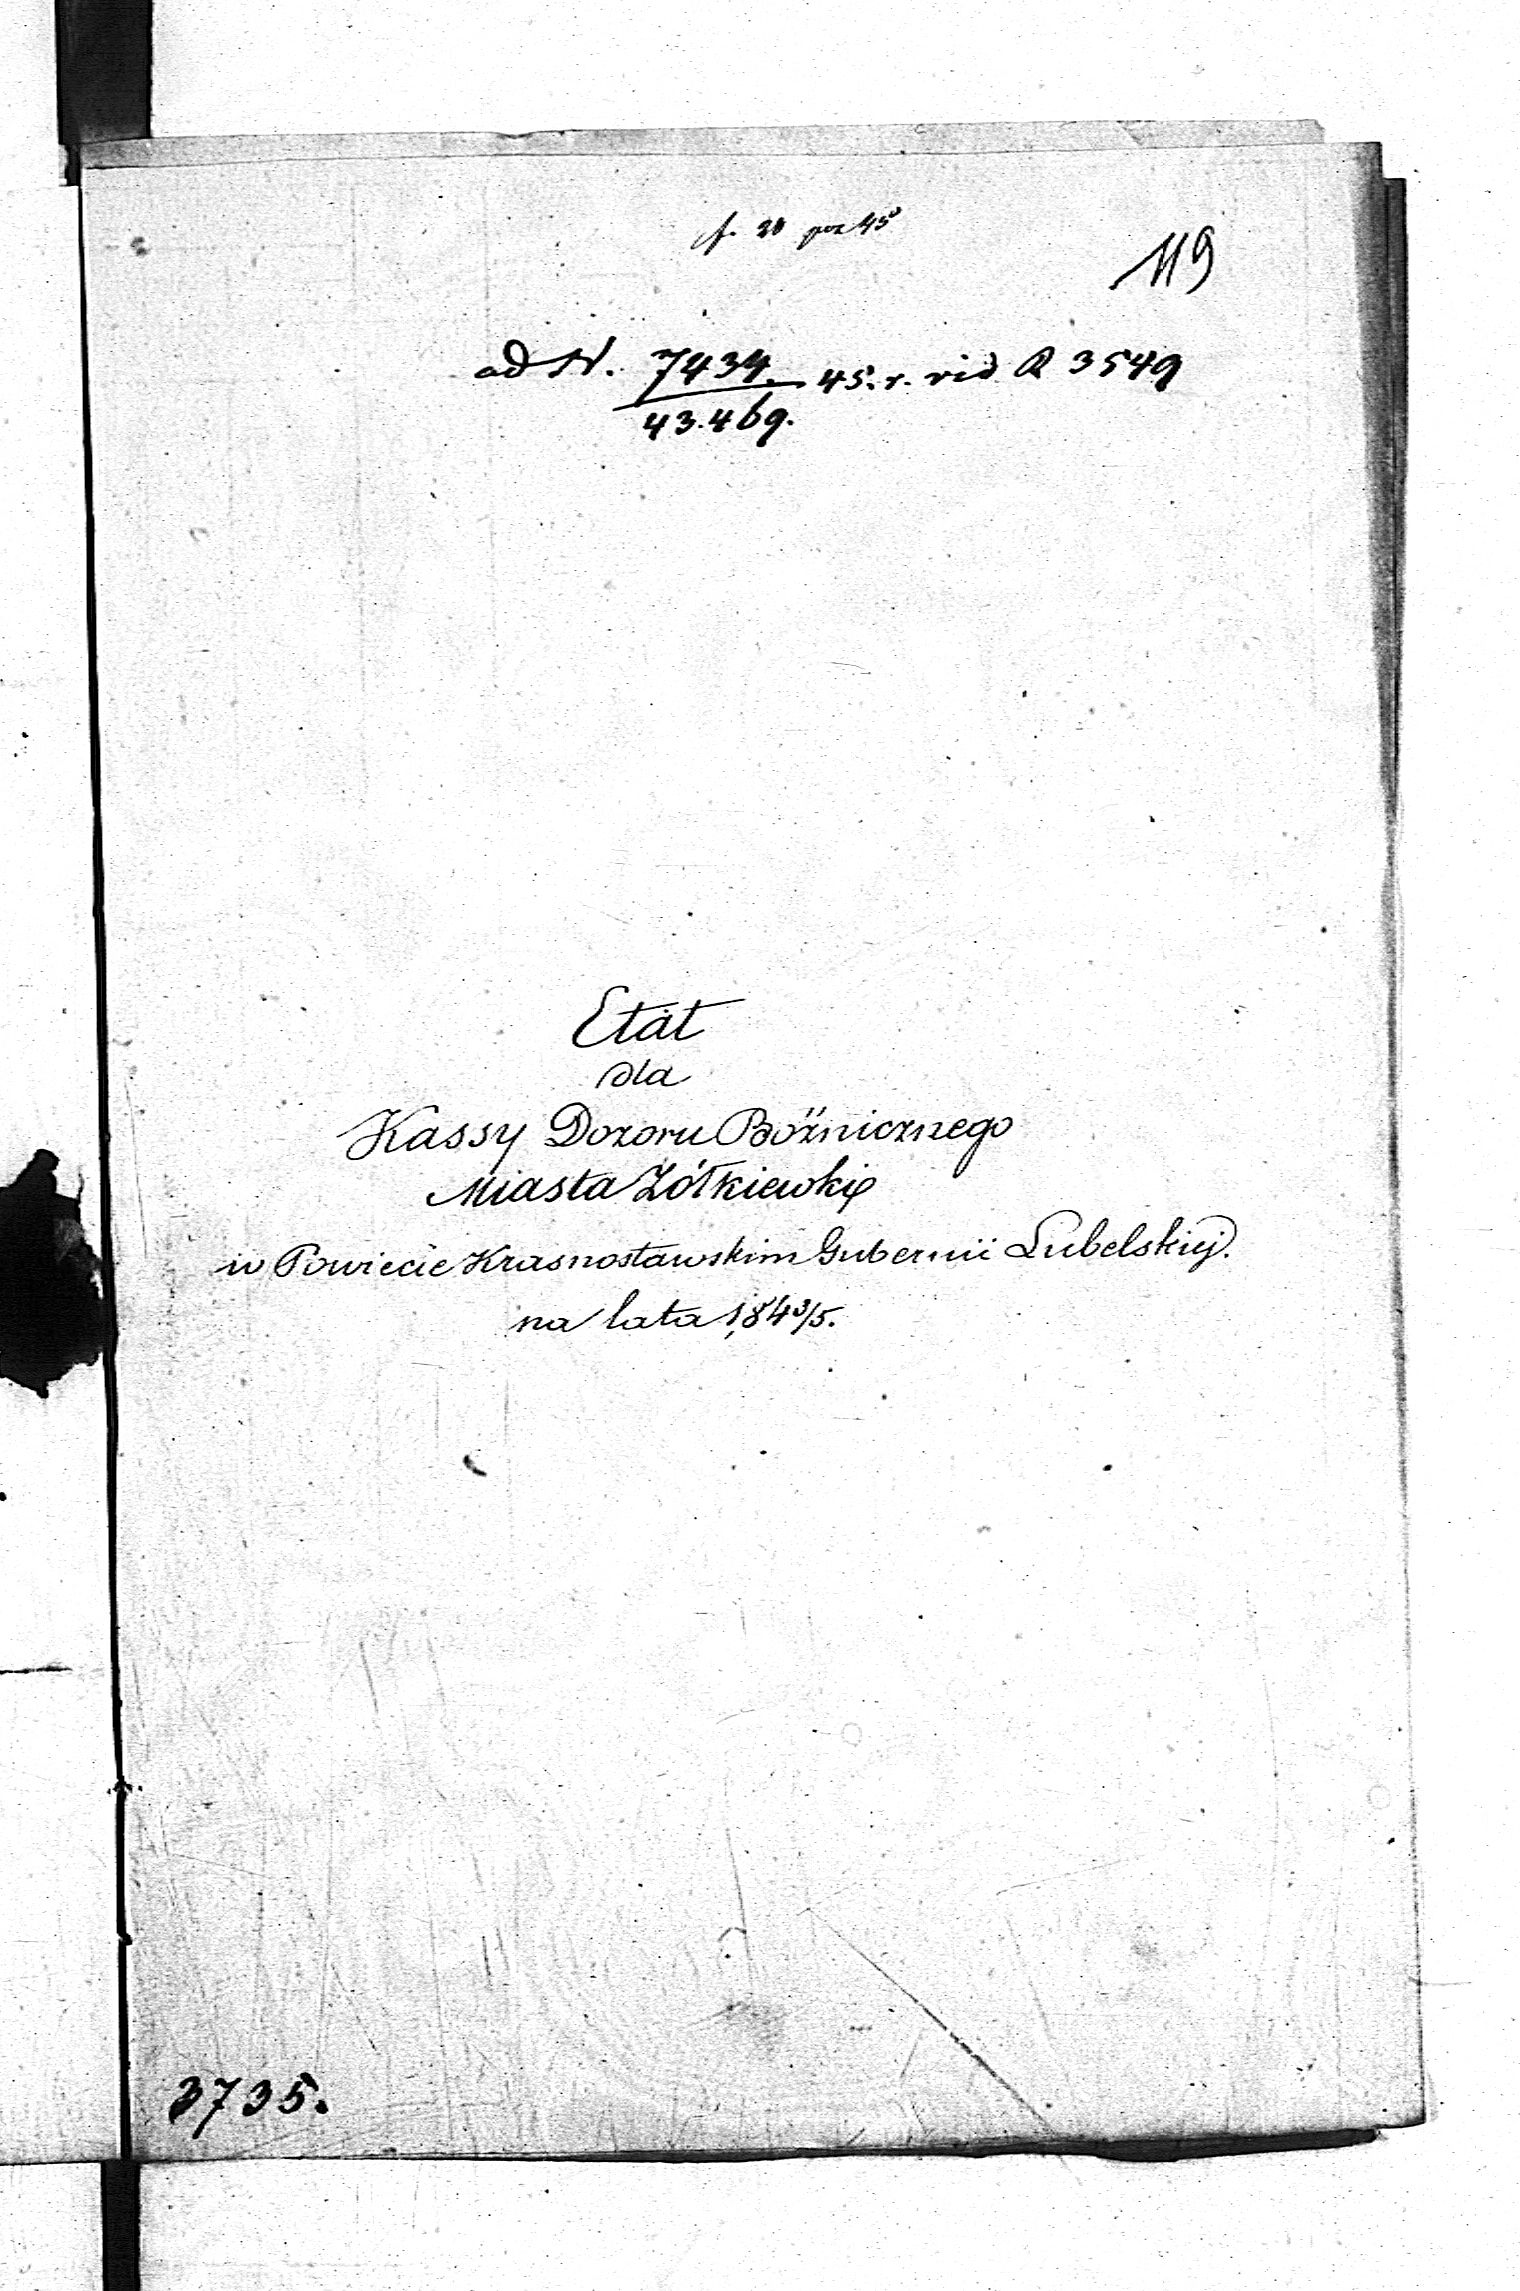 f. 20 poz 45
119
ad N. 7434. 45. r. vid R 3549
43.469.
Etat
dla
Kassy Dozoru Bóżnicznego
Miasta Zółkiewki
w Powiecie Krasnostawskim Gubernii Lubelskiej.
na lata 1843/5.
3735.